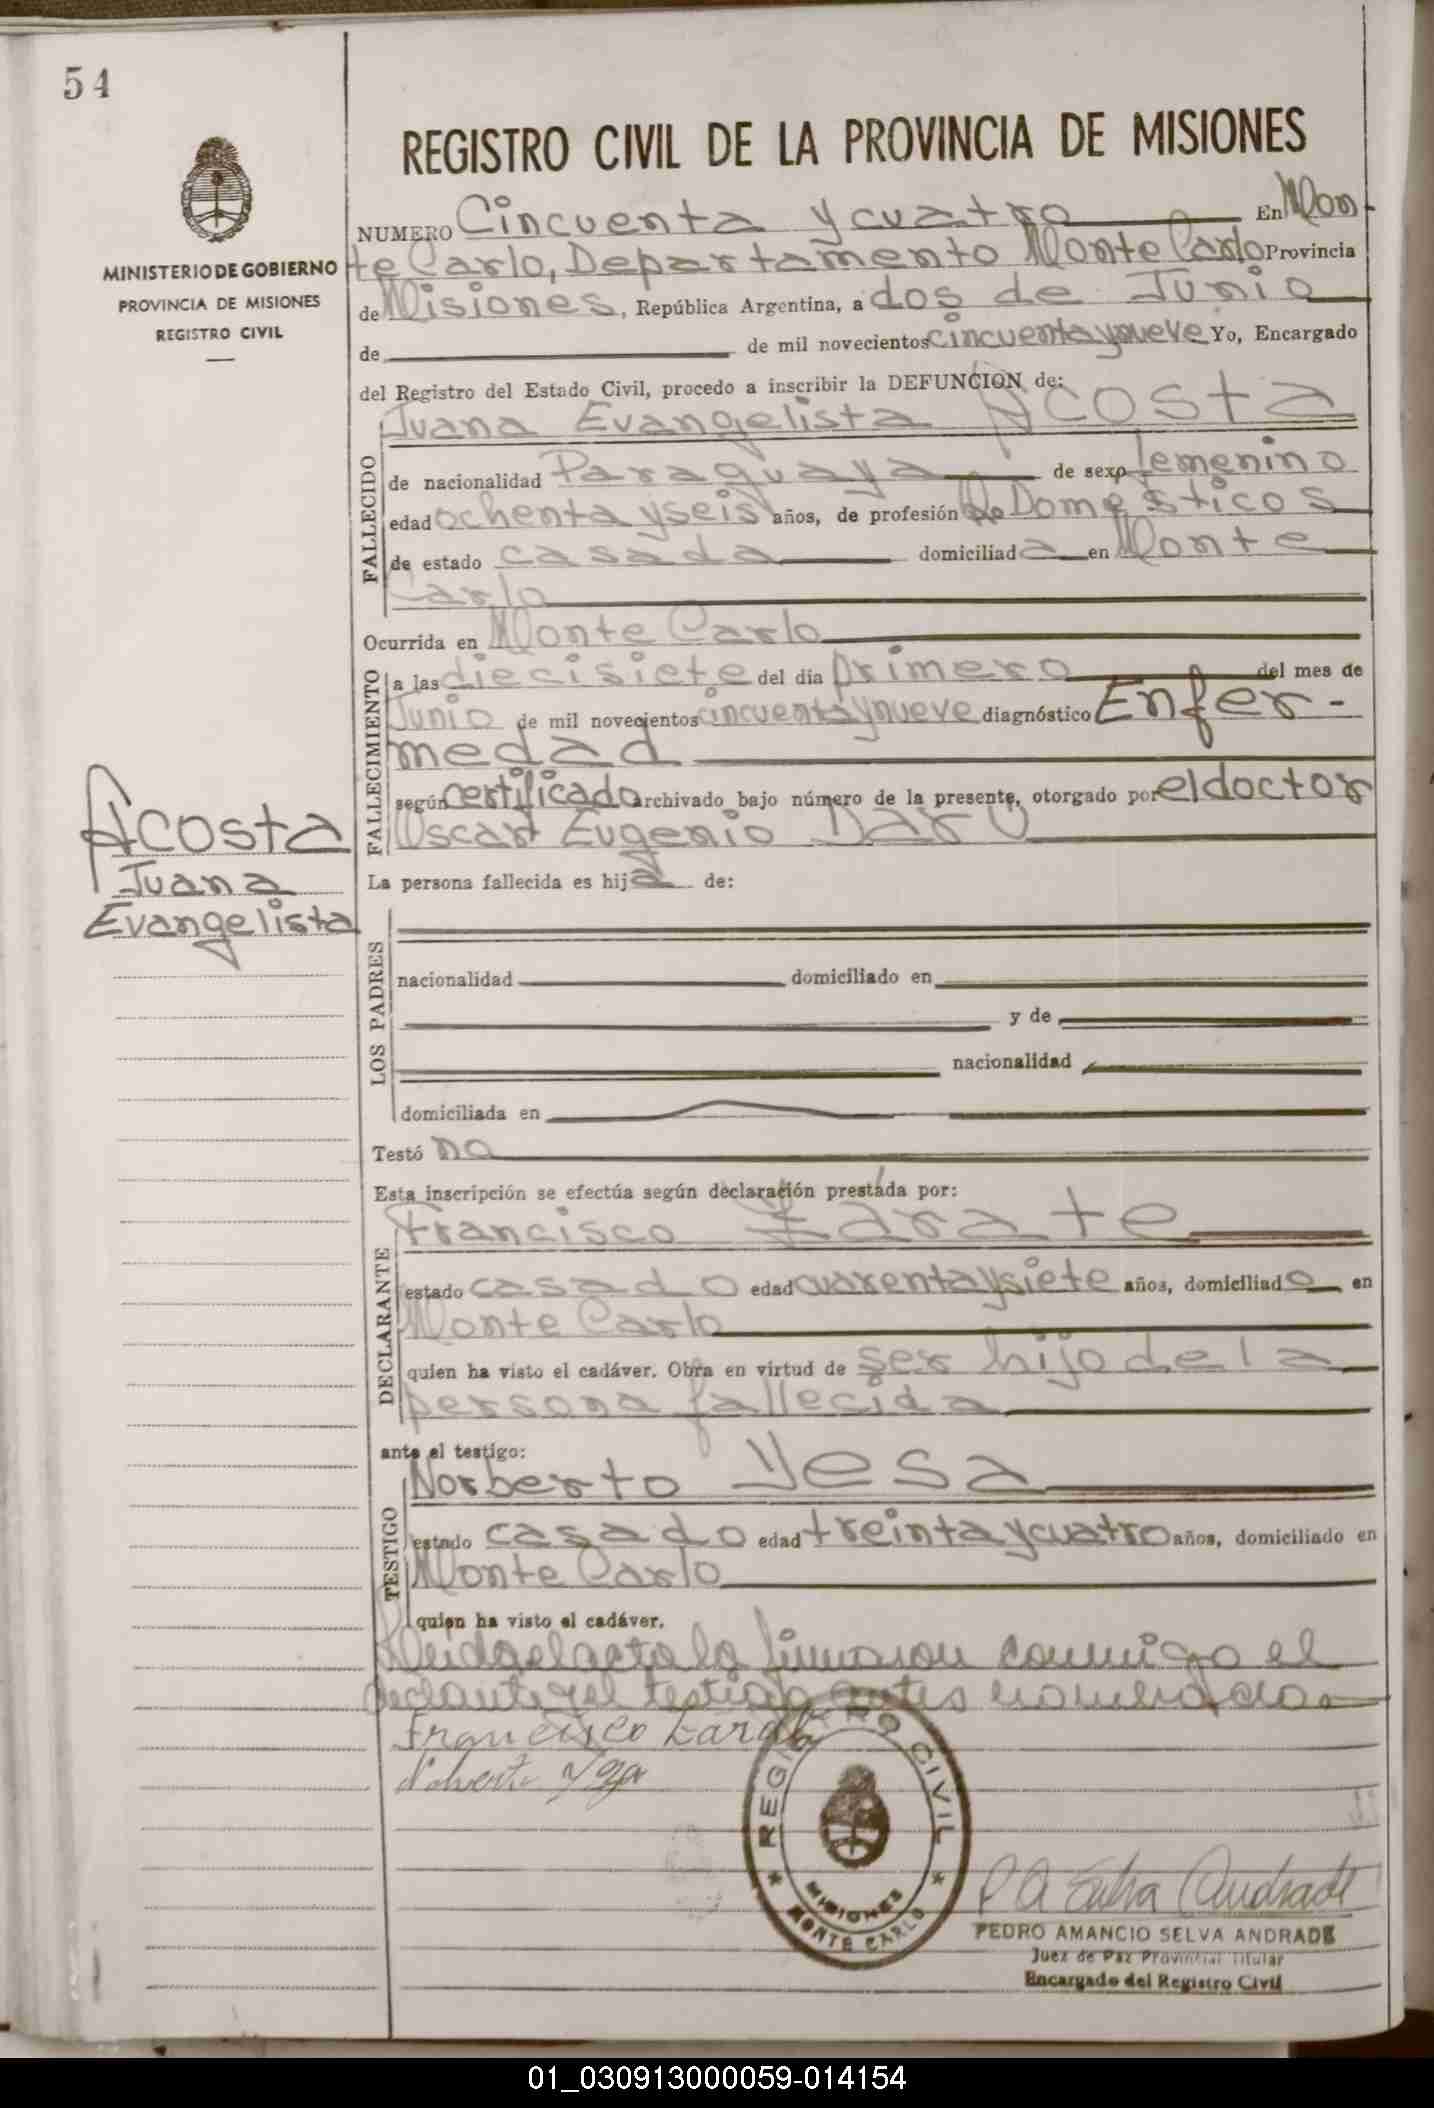 54
REGISTRO CIVIL DE LA PROVINCIA DE MISIONES
MINISTERIO DE GOBIERNO
PROVINCIA DE MISIONES
REGISTRO CIVIL
NUMERO Cincuenta y cuatro En Mon
te Carlo, Departamento Monte Carlo Provincia
de Misiones, República Argentina, a dos de Junio
de de mil novecientos cincuenta y nueve Yo, Encargado
del Registro del Estado Civil, procedo a inscribir la DEFUNCION de:
Juana Evangelista Acosta
FALLECIDO
de nacionalidad Paraguaya de sexo femenino
edad ochenta y seis años, de profesión Domésticos
de estado casada domiciliada en Monte
Carlo
Ocurrida en Monte Carlo
FALLECIMIENTO
a las diecisiete del día primero del mes de
Junio de mil novecientos cincuenta y nueve diagnóstico Enfer-
medad
según certificado archivado bajo número de la presente, otorgado por el doctor
Oscar Eugenio Darú
Acosta
Juana
Evangelista
La persona fallecida es hija de:
LOS PADRES
nacionalidad domiciliado en
y de
nacionalidad
domiciliada en
Testó no
Esta inscripción se efectúa según declaración prestada por:
Francisco Zárate
DECLARANTE
estado casado edad cuarenta y siete años, domiciliado en
Monte Carlo
quien ha visto el cadáver. Obra en virtud de ser hijo de la
persona fallecida
ante el testigo:
Norberto Yesa
TESTIGO
estado casado edad treinta y cuatro años, domiciliado en
Monte Carlo
quien ha visto el cadáver.
Leida el acta la firmaron conmigo el
declarante y el testigo antes nombrado.
Francisco Zarate
REGISTRO CIVIL
MISIONES
MONTE CARLO
P A Selva Andrade
PEDRO AMANCIO SELVA ANDRADE
Juez de Paz Provincial Titular
Encargado del Registro Civil
01_030913000059-014154